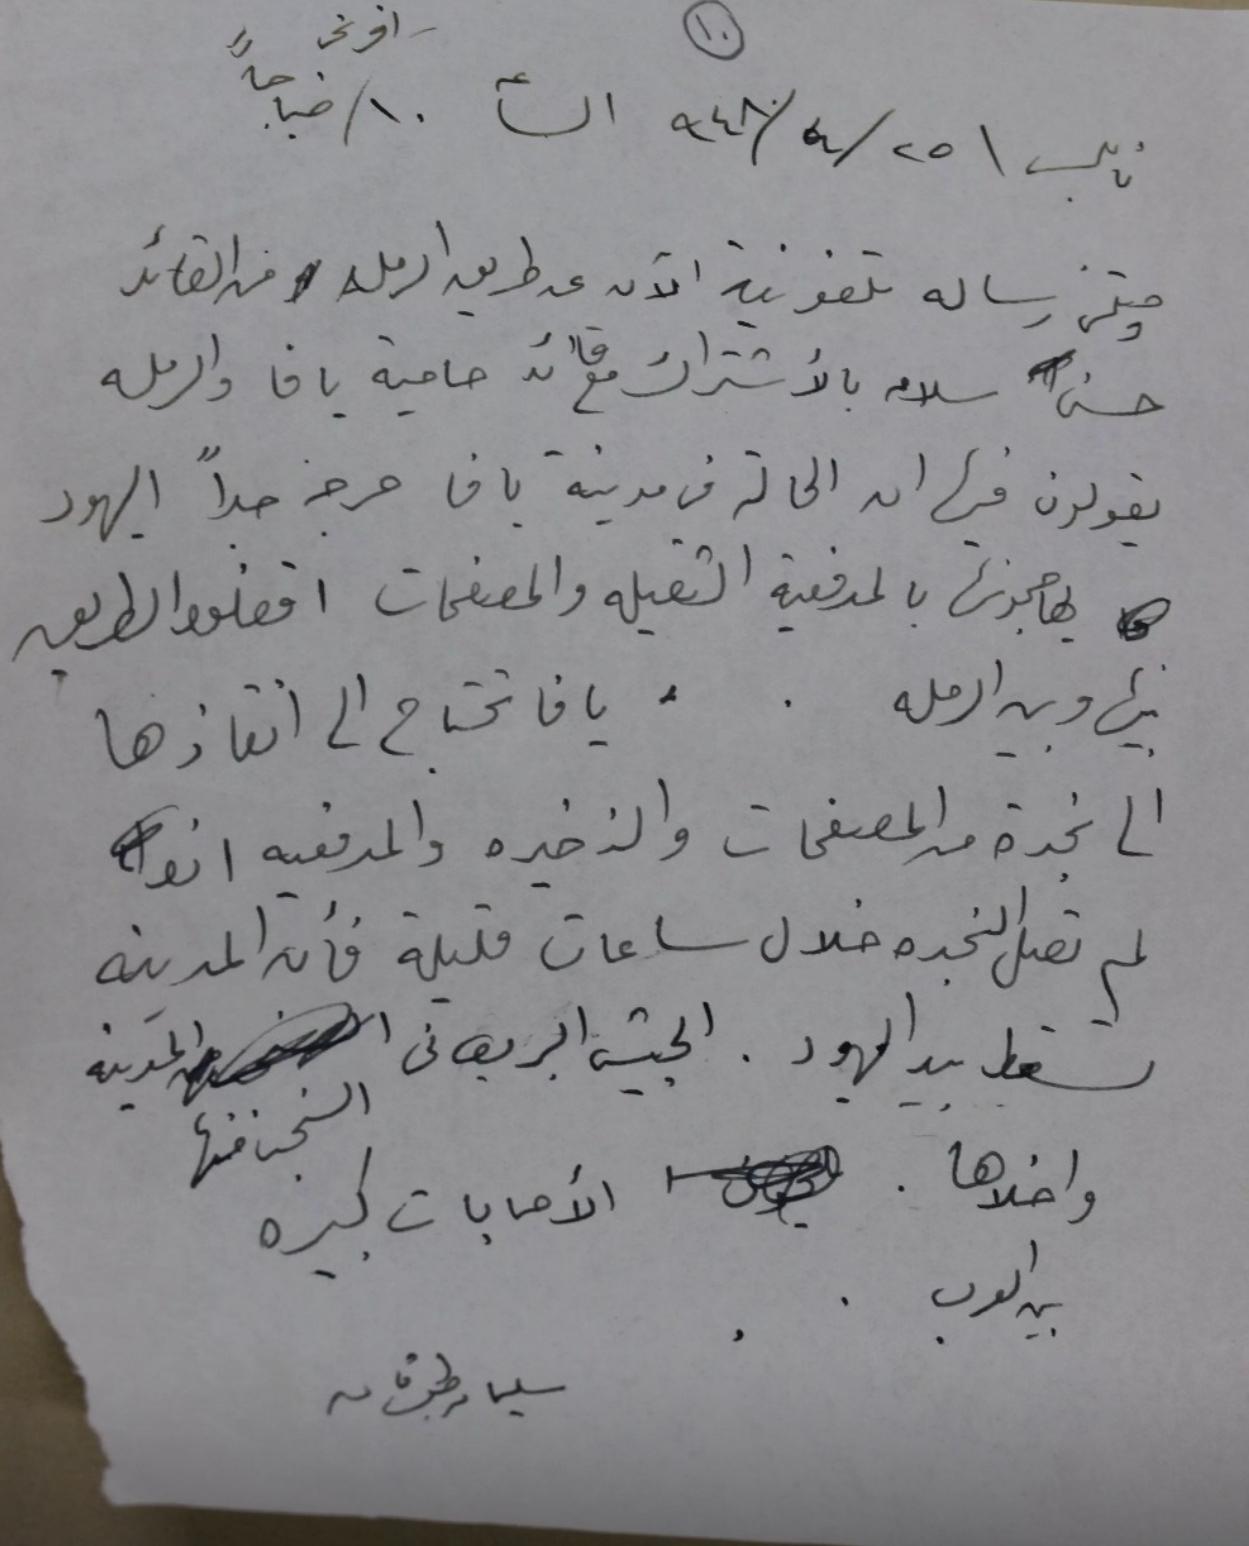 ١٠
نابلس ٢٥/٤/٩٤٨ الساعة ١٠/ صباحاً
وصلتني رساله تلفونية الآن عن طريق الرمله من القائد
حسن سلامه بالأشتراك مع قائد حامية يافا والرمله
يقولون فيها ان الحالة في مدينة يافا حرجة جداً اليهود
يهاجمونها بالمدفعية الثقيله والمصفحات اقفلوا الطريق
بينها وبين الرمله . يافا تحتاج الى انقاذها
الى نجدة من المصفحات والذخيره والمدفعيه اذا
لم تصل النجده خلال ساعات قليلة فأن المدينه
تسقط بيد اليهود . الجيش البريطاني انسحب من المدينه
واخلاها . الأصابات كبيره
بين العرب .